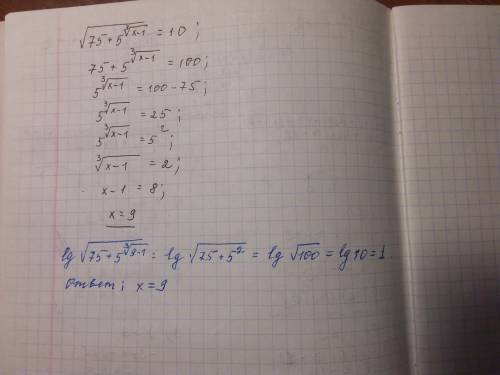 √(75+5^(∛(x-1))) = 10;
75+5^(∛(x-1)) = 100;
5^(∛(x-1)) = 100-75;
5^(∛(x-1)) = 25;
5^(∛(x-1)) = 5²;
∛(x-1) = 2;
x-1 = 8;
x=9
lg √(75+5^(∛(9-1))) = lg √(75+5²) = lg √100 = lg 10=1.
Ответ: x=9